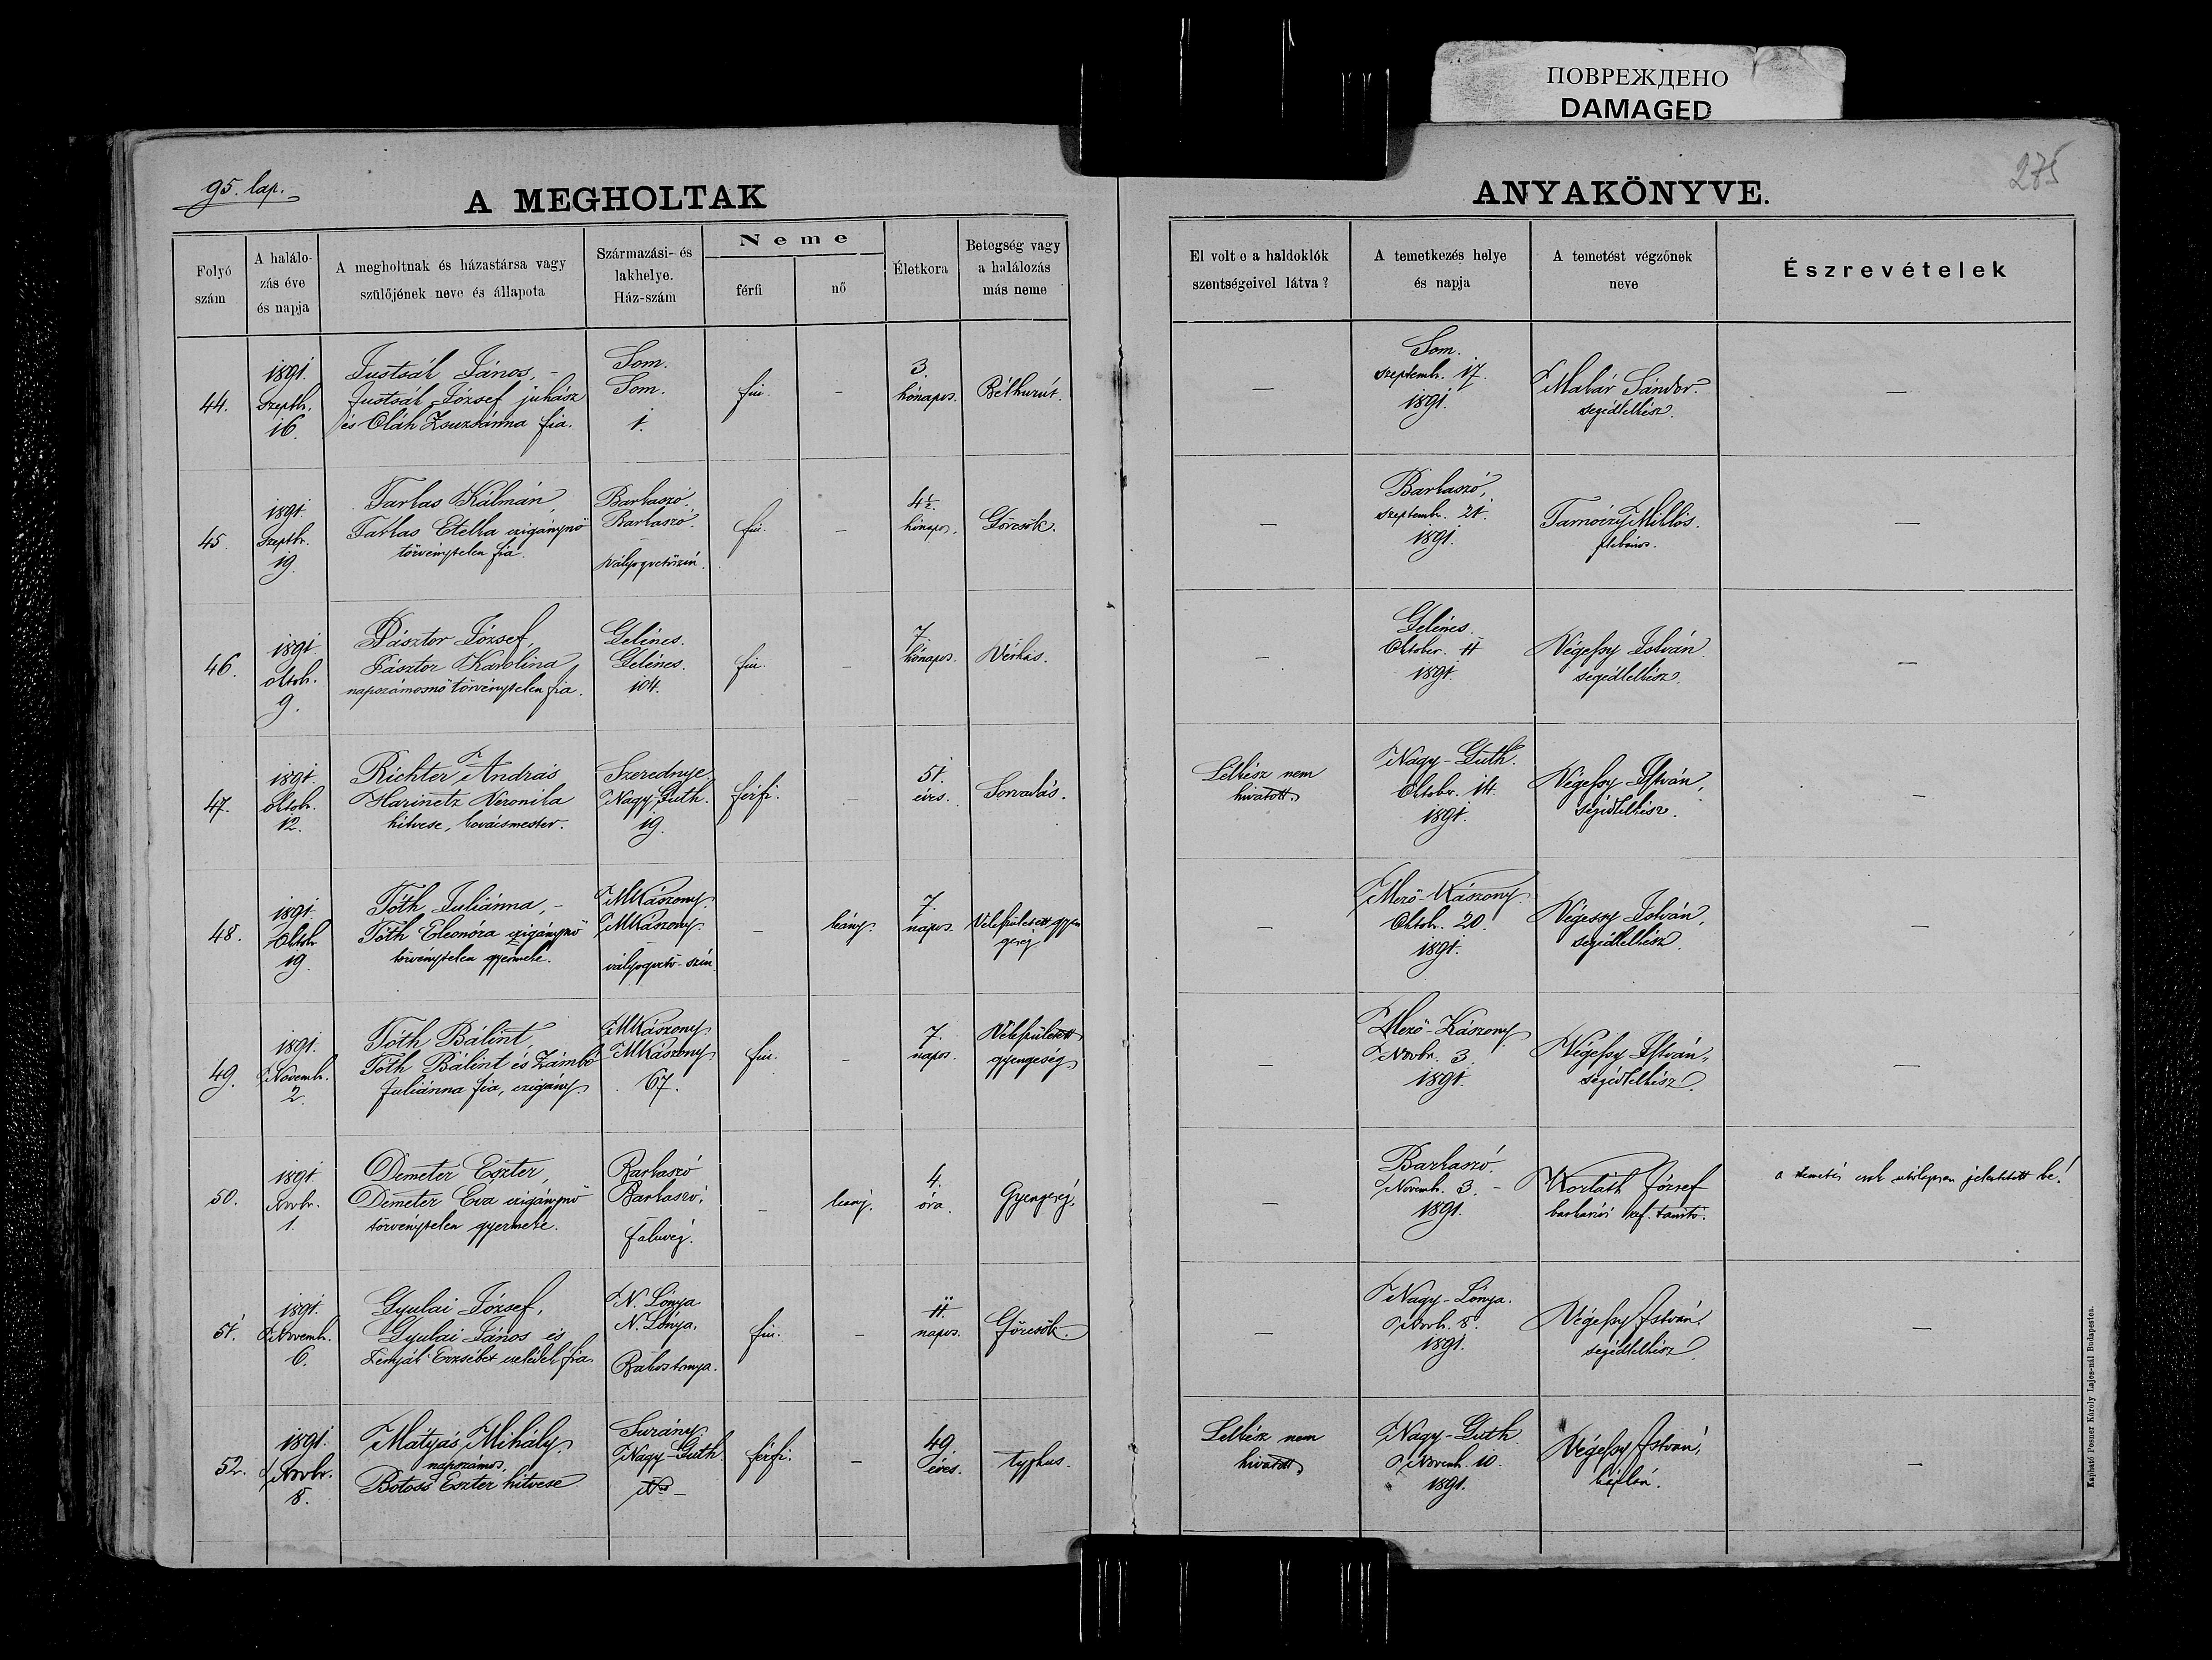 ПОВРЕЖДЕНО
DAMAGED
275
95. lap.
A MEGHOLTAK
ANYAKÖNYVE.
Folyó szám
A halálozás éve és napja
A megholtnak és házastársa vagy szülőjének neve és állapota
Származási- és lakhelye. Ház-szám
Neme
férfi
nő
Életkora
Betegség vagy a halálozás más neme
El volt e a haldoklók szentségeivel látva?
A temetkezés helye és napja
A temetést végzőnek neve
Észrevételek
44.
1891.
Szeptb.
16.
Justsák János, -
Justsák József juhász
és Oláh Zsuzsánna fia.
Som.
Som.
1.
fiu.
-
3.
hónapos.
Bélhurut.
—
Som.
Szeptemb. 17.
1891.
Makár Sándor
segédlelkész.
—
45.
1891.
Szeptb.
19.
Farkas Kálmán,
Farkas Etelka czigánynő
törvénytelen fia.
Barkaszó.
Barkaszó.
Vályogvetőszín.
fiu.
-
4½
hónapos.
Görcsök.
—
Barkaszó,
Szeptemb. 21.
1891.
Tarnóczy Miklós.
plebános.
—
46.
1891.
Oktob.
9.
Pásztor József,
Pásztor Karolina
napszámosnő törvénytelen fia.
Gelénes.
Gelénes.
104.
fiu.
-
7.
hónapos.
Vérhas.
—
Gelénes.
Oktober. 11
1891.
Végessy István
segédlelkész.
—
47.
1891.
Oktob.
12.
Richter András
Harinetz Veronika
hitvese, kovácsmester.
Szerednye.
Nagy-Guth.
19.
férfi.
-
51.
éves.
Sorvadás.
Lelkész nem
hivatott.
Nagy-Guth.
Oktobr. 14.
1891.
Végessy István,
segédlelkész.
—
48.
1891.
Oktob
19.
Tóth Juliánna, -
Tóth Eleonóra czigánynő
törvénytelen gyermeke.
MKászony.
MKászony.
vályogvető-szín.
-
leány.
7.
napos.
Veleszületett gyen
geség
—
Mező-Kászony.
Oktob. 20.
1891.
Végessy István,
segédlelkész.
—
49.
1891.
Novemb.
2.
Tóth Bálint,
Tóth Bálint és Zámbó
Juliánna fia, czigány.
MKászony
MKászony
67.
fiu.
-
7.
napos.
Veleszületett
gyengeség
—
Mező-Kászony
Novbr. 3.
1891.
Végessy István,
segédlelkész.
—
50.
1891.
Novbr.
1.
Demeter Eszter,
Demeter Eva czigánynő
törvénytelen gyermeke.
Barkaszó
Barkaszó,
faluvég.
-
leány.
4.
óra.
Gyengeség.
—
Barkaszó.
Novemb. 3. -
1891.
Korláth József
barkaszói ref. tanító.
a temetés csak utólagosan jelentetett be!
51.
1891.
Novemb.
6.
Gyulai József,
Gyulai János és
Erzsébet cselédek fia.
N. Lónya
N. Lónya.
Bakostanya.
fiu.
-
11.
napos.
Görcsök.
—
Nagy-Lónya.
Novb. 8.
1891.
Végessy István,
segédlelkész.
—
52.
1891.
Novbr.
8.
Matyás Mihály,
napszámos,
Botoss Eszter hitvese
Surány.
Nagy-Guth.
No -
férfi.
-
49.
éves.
typhus.
Lelkész nem
hivatott.
Nagy-Guth.
Novemb. 10.
1891.
Végessy István,
káplán.
—
Kapható Posner Károly Lajos-nál Budapesten.